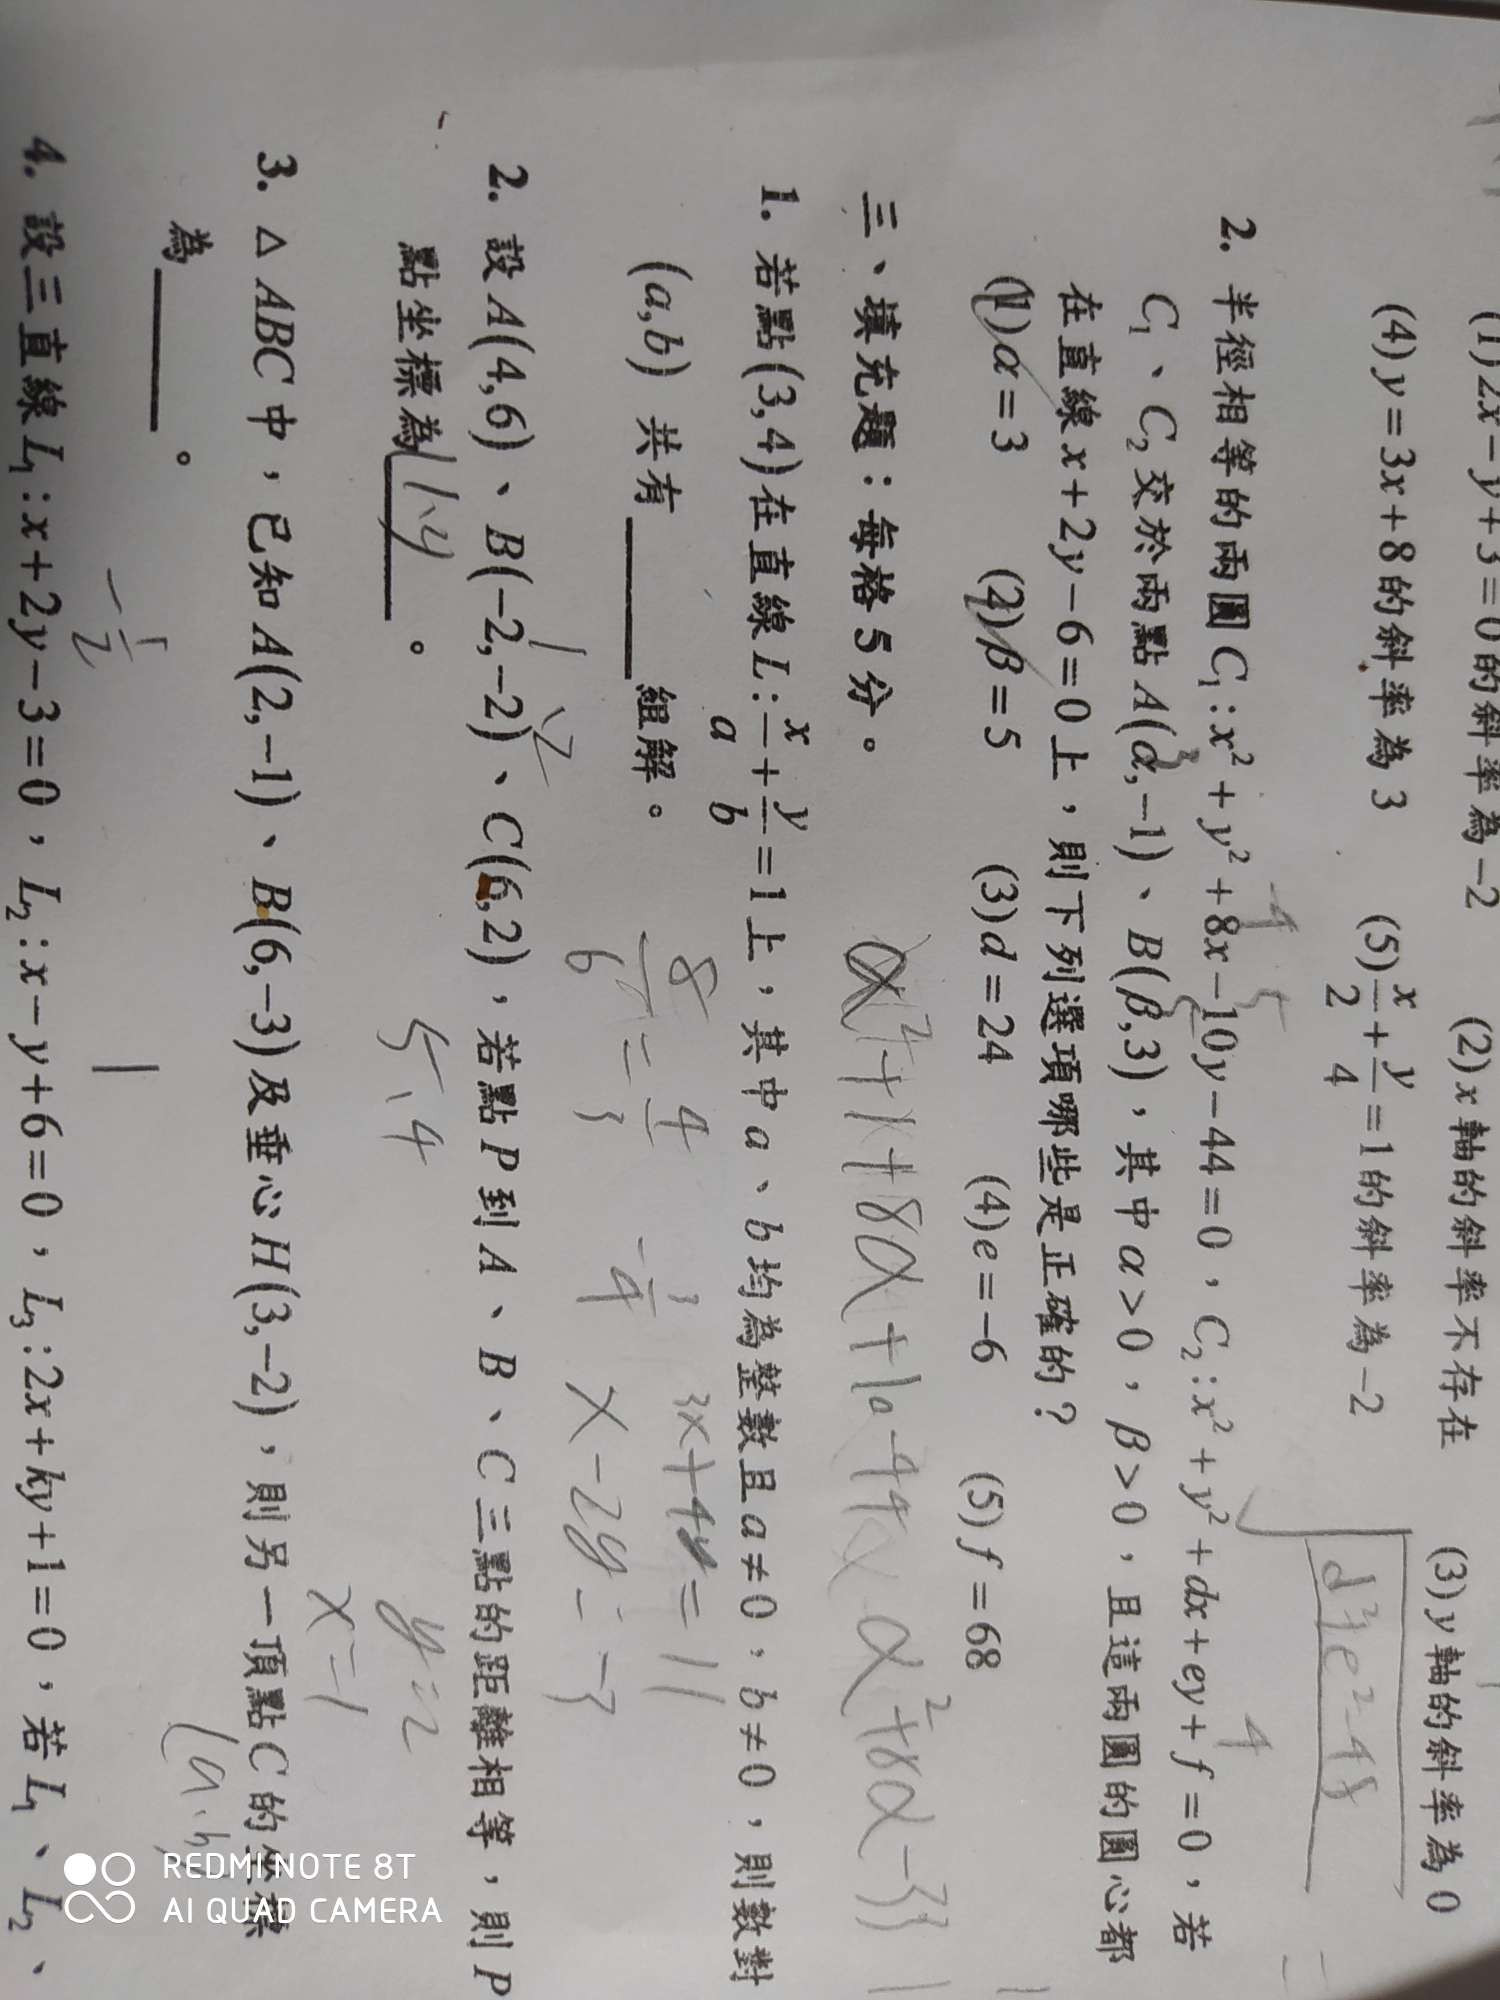 (1)2x−y+3=0的斜率為−2 (2)x軸的斜率不存在 (3)y軸的斜率為0
(4)y=3x+8的斜率為3 (5)x/2+y/4=1的斜率為−2
√d²+e²−4f
−4 5
4
2. 半徑相等的兩圓C₁:x²+y²+8x−10y−44=0，C₂:x²+y²+dx+ey+f=0，若
C₁、C₂交於兩點A(α,−1)、B(β,3)，其中α>0，β>0，且這兩圓的圓心都
在直線x+2y−6=0上，則下列選項哪些是正確的？
(1)α=3 (2)β=5 (3)d=24 (4)e=−6 (5)f=68
三、填充題：每格5分。
α²+1+8α+10−44 α²+8α−33
1. 若點(3,4)在直線L:x/a+y/b=1上，其中a、b均為整數且a≠0，b≠0，則數對
(a,b) 共有______組解。
8/6=4/3 −3/4 3x+4y=11
x−2y=−3
1,2
2. 設A(4,6)、B(−2,−2)、C(6,2)，若點P到A、B、C三點的距離相等，則P
點坐標為______。
5,4 y=2
x=1
3. △ABC中，已知A(2,−1)、B(6,−3)及垂心H(3,−2)，則另一頂點C的坐標
為______。
−1/2 1
4. 設三直線L₁:x+2y−3=0，L₂:x−y+6=0，L₃:2x+ky+1=0，若L₁、L₂、
REDMI NOTE 8T
AI QUAD CAMERA